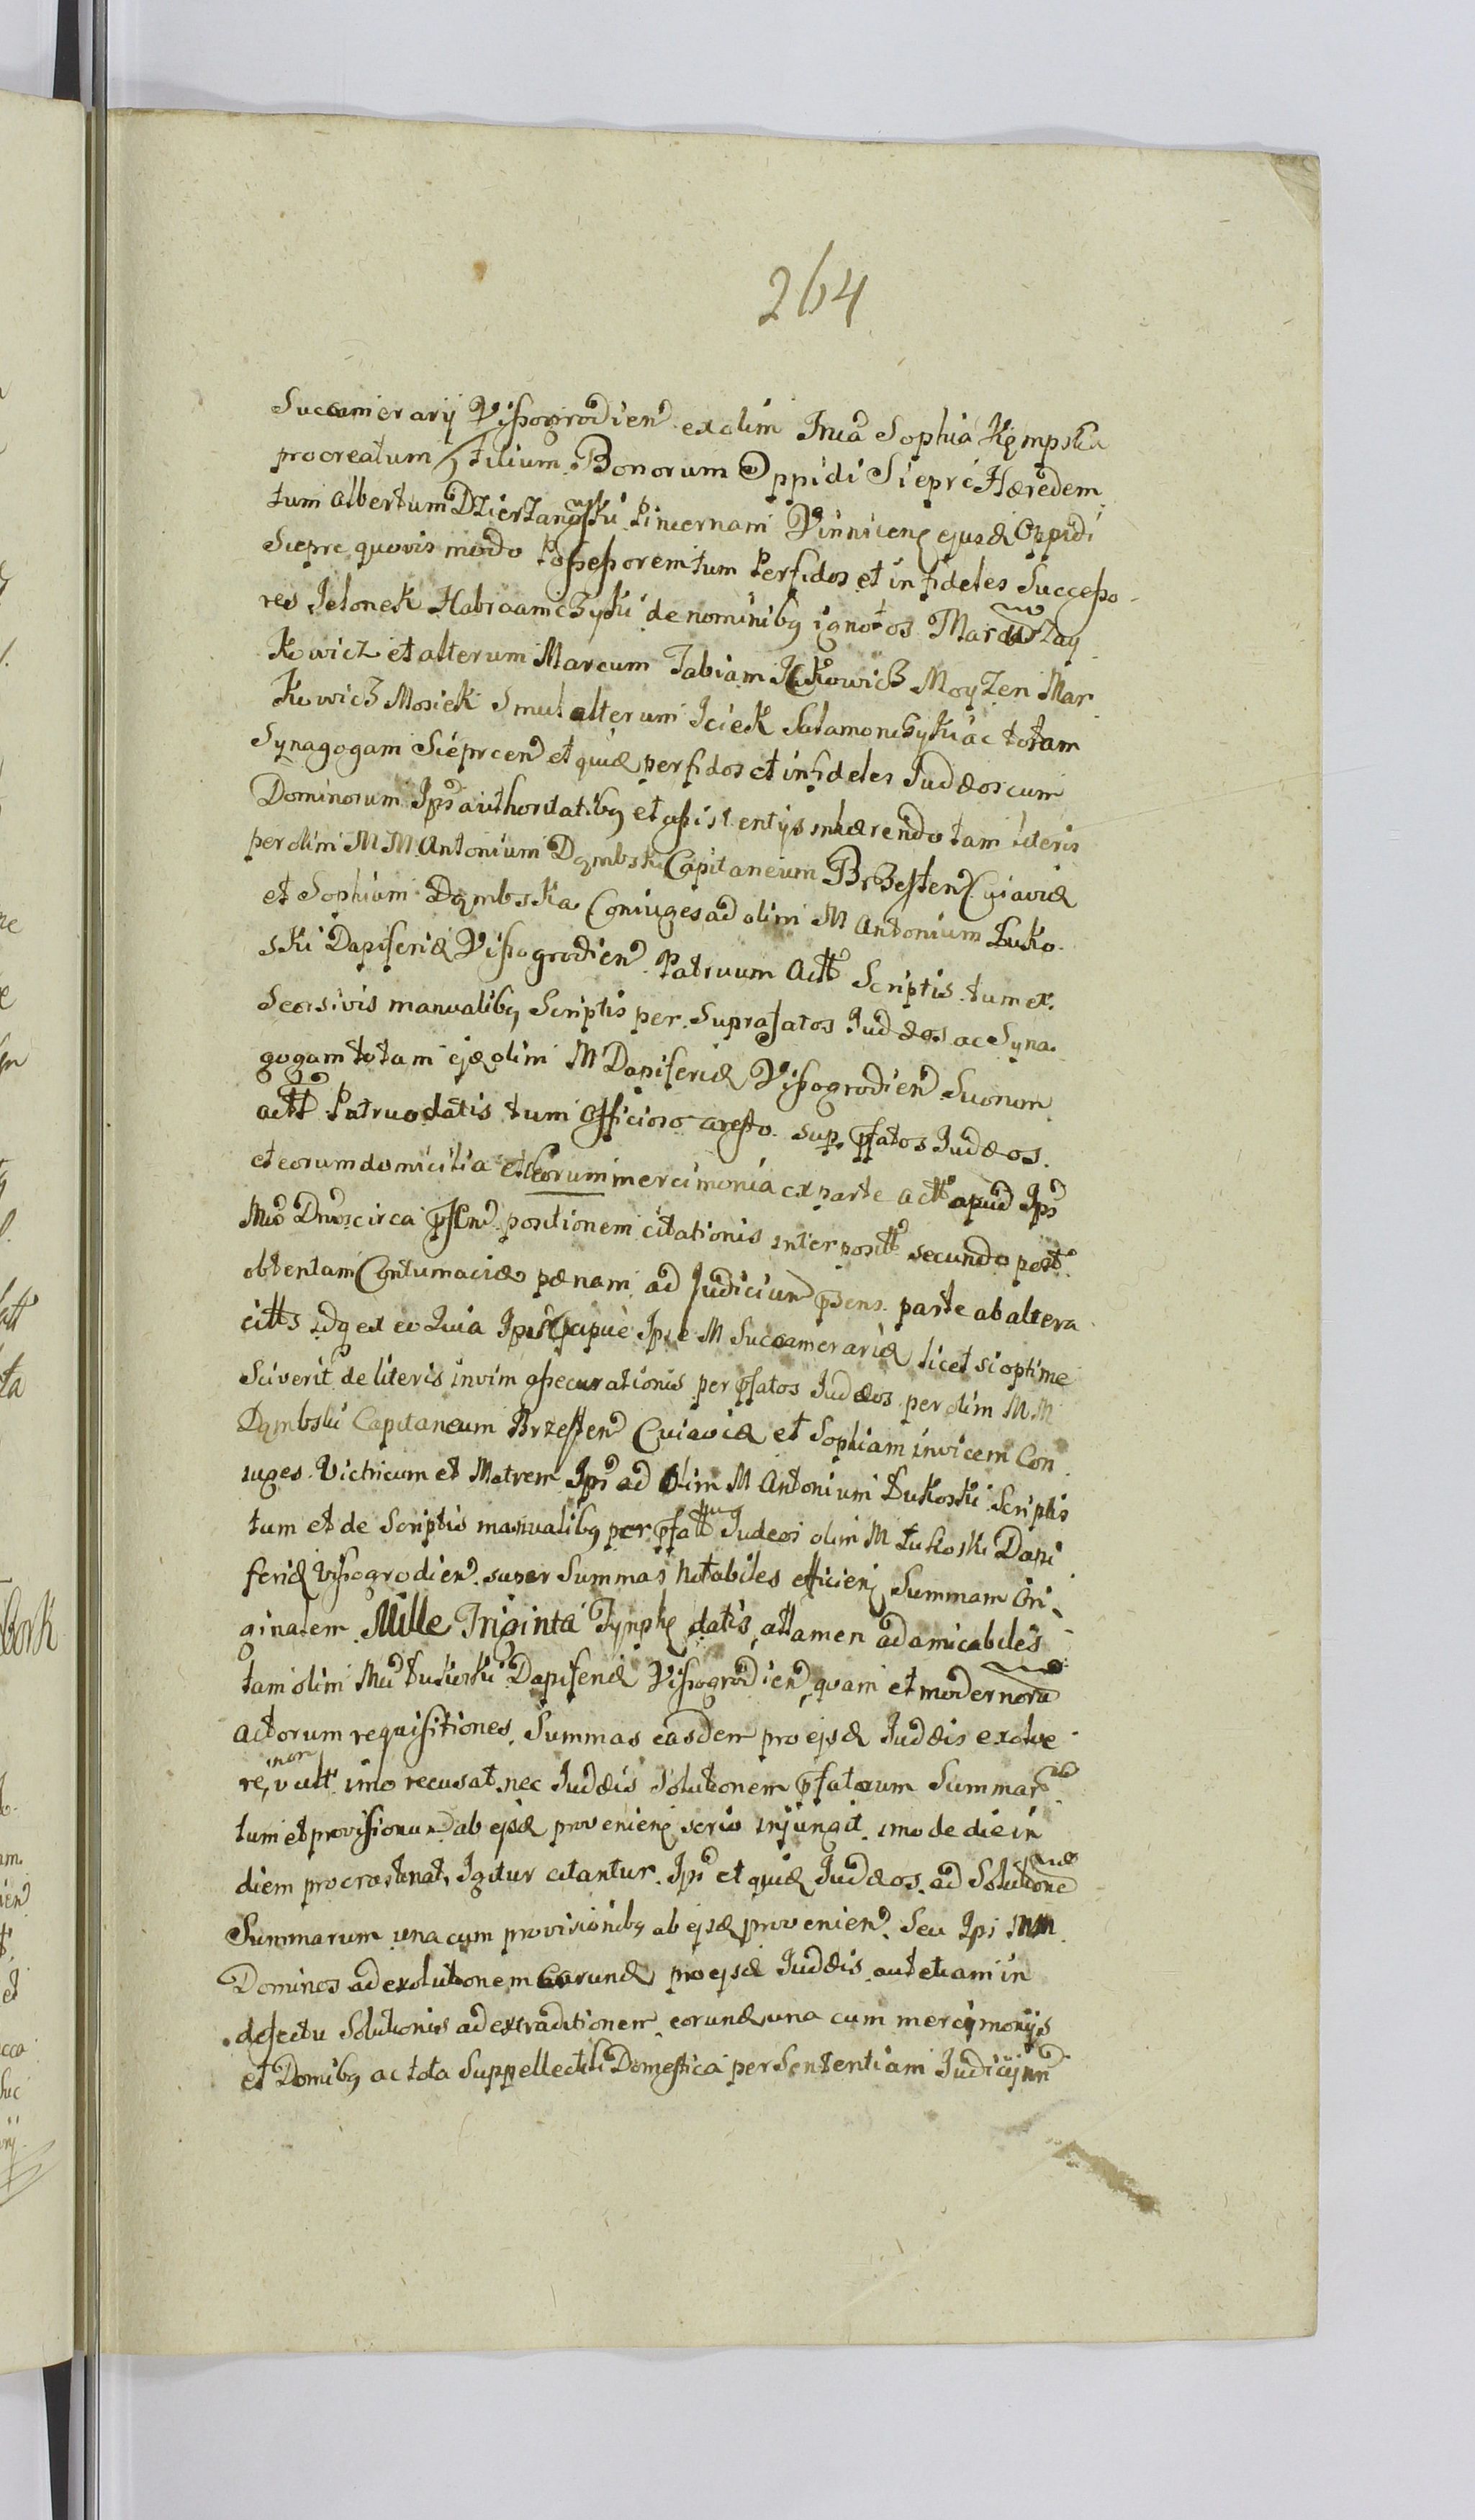 264
Succamerarij Vissogrodien ex olim Mca Sophia Kępska
procreatum Filium Bonorum Oppidi Sieprc Hæredem
tum Albertum Dzierzanowski Pincernam Vinnicen ejusd Oppidi
Sieprc quovis modo Possessorem tum Perfidos et infideles Successo-
res Jelonek Habraamczyki de nominibq ignotos Mard Zay
Kowicz et alterum Marcum Fabiam Ickowicz Moyzen Mar
Kowicz Mosiek Smul alterum Iciek Salamonczyki ac totam
Synagogam Sieprcen et quid perfidos et infideles Judæos cum
Dominorum Ips authoritatibq et assistentijs inhærendo tam literis
per olim M M Antonium Dąmbski Capitaneum Brzesten Cuiaviæ
et Sophiam Dąmbska Coniuges ad olim M Antonium Łuko-
ski Dapiferid Vissogrodien Patruum Actt Scriptis tum ex
Scorsivis manualibq Scriptis per Suprafatos Judæos ac Syna-
gogam totam ejd olim M Dapiferid Vissogrodien Suonom
actt Patruo datis tum officioso aresto sup pfatos Judæos
et eorum domicilia et eorum mercimonia ex parte actt apud Ips
Mcos Dnos circa psen positionem citationis interposito secundo post
obtentam Contumaciæ pænam ad Judicium psens parte ab altera
citts idq ex eo Quia Ips pcipue Ipse M Succamerarid licet si optime
Sciverit de literis invim assecurationis per pfatos Judæos per olim M M
Dąmbski Capitaneum Brzesten Cuiaviæ et Sophiam invicem Con
iuges Victricum et Matrem Ips ad olim M Antonium Łukoski Scriptis
tum et de Scriptis manualibq per pfatt Judeos olim M Łukoski Dapi
ferid Vissogrodien super Summas Notabiles efficien Summam Ori-
ginalem Mille Triginta Tymph datis attamen ad amicabiles
tam olim Mci Łukoski Dapiferid Vissogrodien quam et modernorum
actorum requisitiones Summas easdem pro ejsd Judæis exolve
re, non vult imo recusat nec Judæis Solutionem pfatarum Summar
tum et provisionum ab ejsd provenien serio injungit imo de die in
diem procrastinat, Igitur citantur Ips et quid Judæos ad Solutione
Summarum una cum provisionibq ab ejsd provenien Seu Ips MM
Dominos ad exolutionem Earund pro ejsd Judæis aut etiam in
defectu Solutionis ad extraditionem eorund una cum mercijmonijs
et Domibq ac tota Suppellectili Domestica per Sententiam Judicij nri